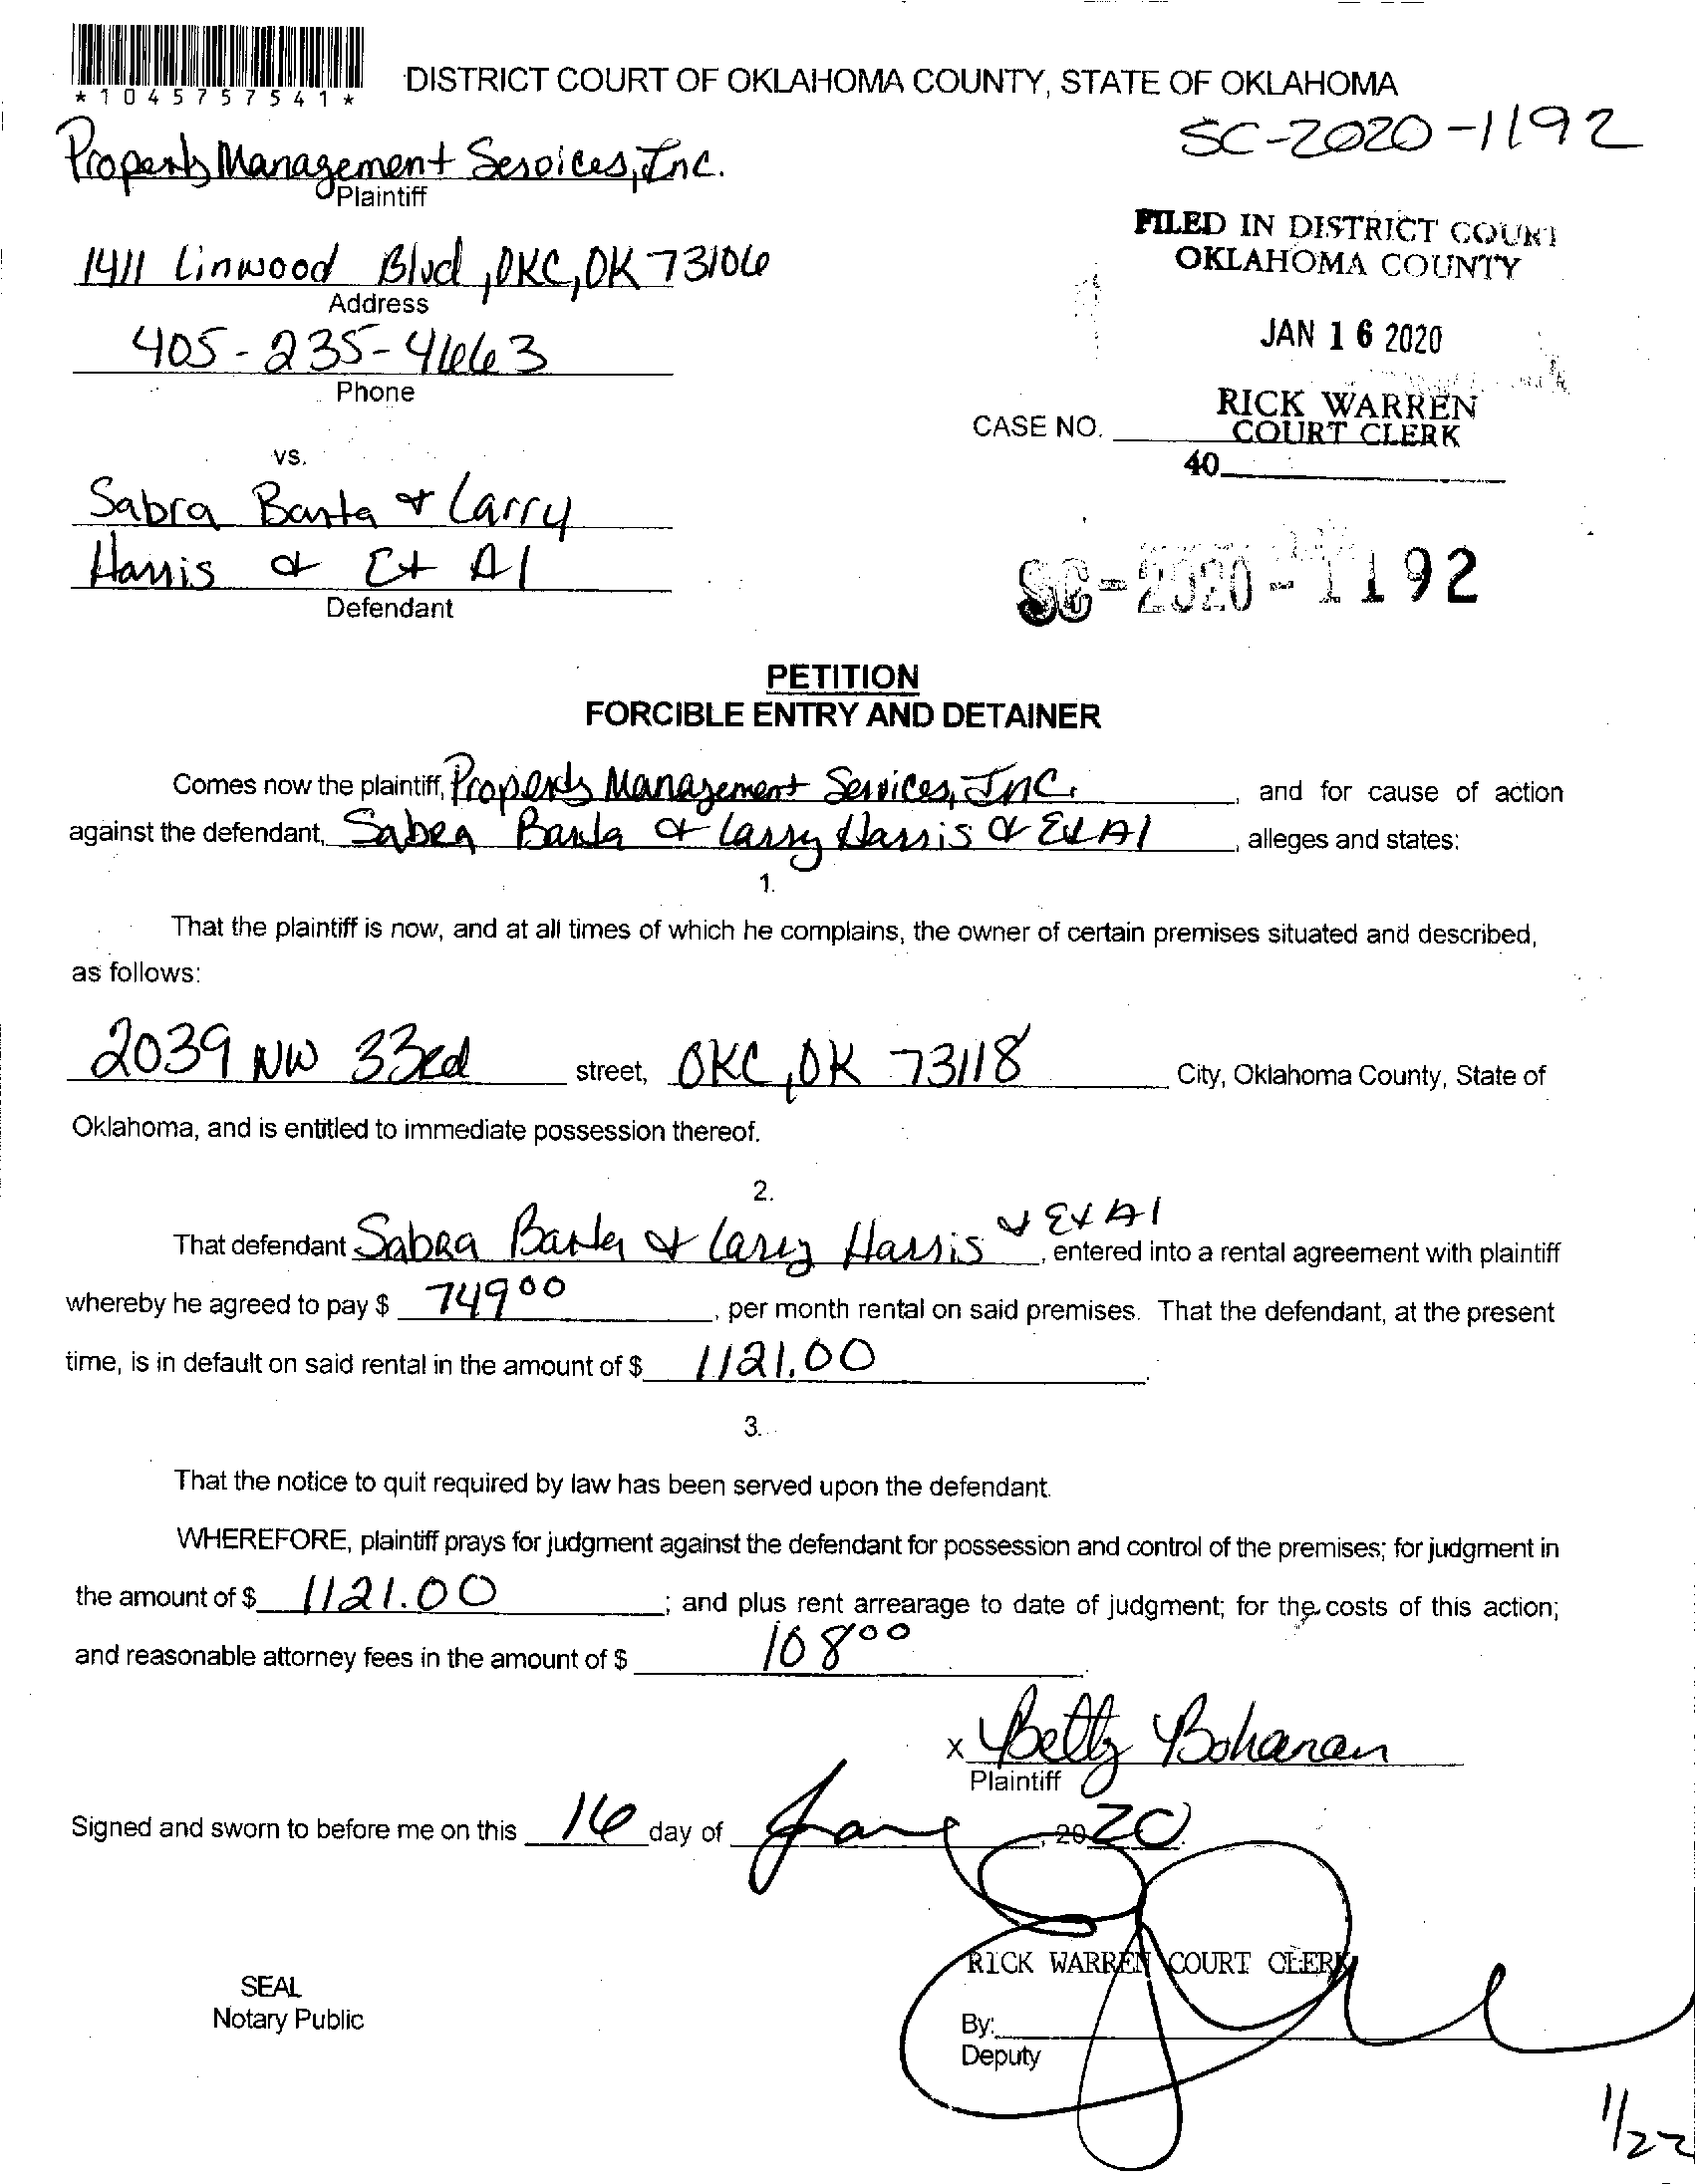 *1045757541*
DISTRICT COURT OF OKLAHOMA COUNTY, STATE OF OKLAHOMA
SC-2020-1192
Property Management Services, Inc.
Plaintiff
FILED IN DISTRICT COURT
OKLAHOMA COUNTY
1411 Linwood Blvd, OKC, OK 73106
Address
JAN 16 2020
405-235-4663
Phone
RICK WARREN
COURT CLERK
CASE NO.
40
vs.
Sabra Banta & Larry
Harris & Et Al
Defendant
SC-2020-1192
PETITION
FORCIBLE ENTRY AND DETAINER
Comes now the plaintiff, Property Management Services, Inc. , and for cause of action
against the defendant, Sabra Banta & Larry Harris & Et Al , alleges and states:
1.
That the plaintiff is now, and at all times of which he complains, the owner of certain premises situated and described,
as follows:
2039 NW 33rd street, OKC, OK 73118 City, Oklahoma County, State of
Oklahoma, and is entitled to immediate possession thereof.
2.
That defendant Sabra Banta & Larry Harris & Et Al , entered into a rental agreement with plaintiff
whereby he agreed to pay $ 749 00 , per month rental on said premises. That the defendant, at the present
time, is in default on said rental in the amount of $ 1121.00 .
3.
That the notice to quit required by law has been served upon the defendant.
WHEREFORE, plaintiff prays for judgment against the defendant for possession and control of the premises; for judgment in
the amount of $ 1121.00 ; and plus rent arrearage to date of judgment; for the costs of this action;
and reasonable attorney fees in the amount of $ 108 00 .
x Betty Bohanan
Plaintiff
Signed and sworn to before me on this 16 day of Jan , 2020.
RICK WARREN COURT CLERK
SEAL
Notary Public
By:
Deputy
1/22